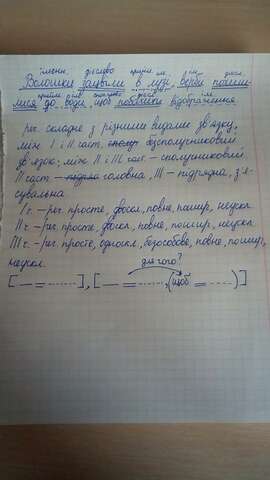 іменн. дієслово прийм. ім. ім. дієсл.
Волошки заквітли в лузі, верби похили-
прийм. ім. сполучник дієсл. ім.
лися до води, щоб побачити відображення.
реч. складне з різними видами зв'язку,
між І і ІІ част. безсполучниковий
зв'язок, між ІІ і ІІІ част. – сполучниковий
ІІ част – головна, ІІІ – підрядна, з'я-
сувальна.
І ч. – реч. просте, двоскл, повне, пошир, неускл.
ІІ ч – реч. просте, двоскл, повне, пошир, неускл
ІІІ ч. – реч. просте, односкл, безособове, повне, пошир,
неускл.
для чого?
[ ], [ , (щоб )]